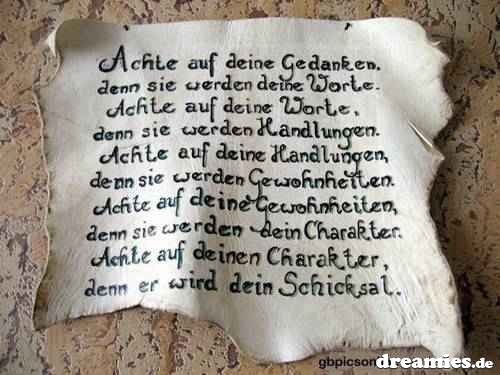 Achte auf deine Gedanken.
denn sie werden deine Worte.
Achte auf deine Worte,
denn sie werden Handlungen.
Achte auf deine Handlungen,
denn sie werden Gewohnheiten.
Achte auf deine Gewohnheiten,
denn sie werden dein Charakter.
Achte auf deinen Charakter,
denn er wird dein Schicksal.
gbpicson
dreamies.de